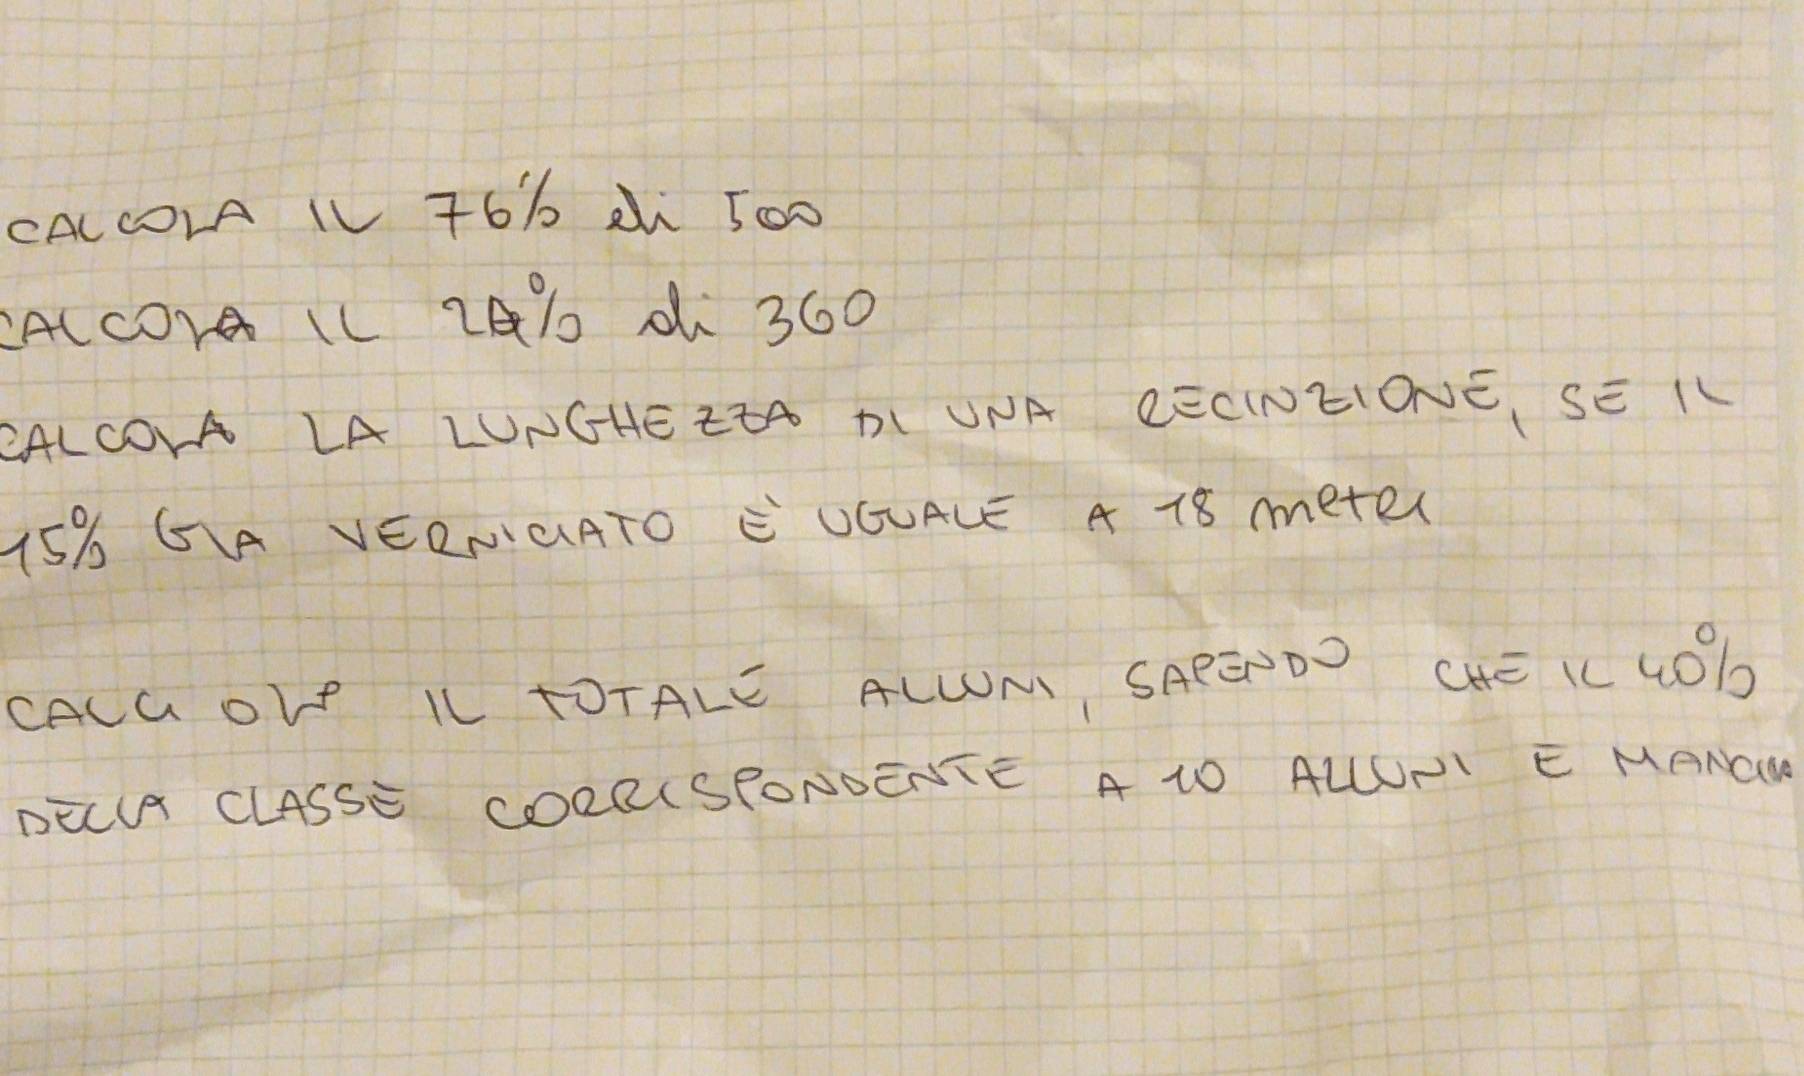 CALCOLA IL 76% di 500
CALCOLA IL 24% di 360
CALCOLA LA LUNGHEZZA DI UNA RECINZIONE, SE IL
15% GIA VERNICIATO E' UGUALE A 18 metri
CALCOLA IL TOTALE ALUNNI, SAPENDO CHE IL 40%
DELLA CLASSE CORRISPONDENTE A 10 ALUNNI E MANCINA